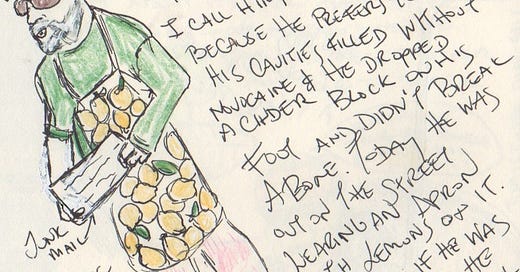 I CALL HIM
BECAUSE HE PREFERS
HIS CAVITIES FILLED WITHOUT
NOVOCAINE & HE DROPPED
A CINDER BLOCK ON HIS
FOOT AND DIDN'T BREAK
A BONE. TODAY HE WAS
OUT ON THE STREET
WEARING AN APRON
LEMONS ON IT.
IF HE WAS
HE
JUNK
MAIL